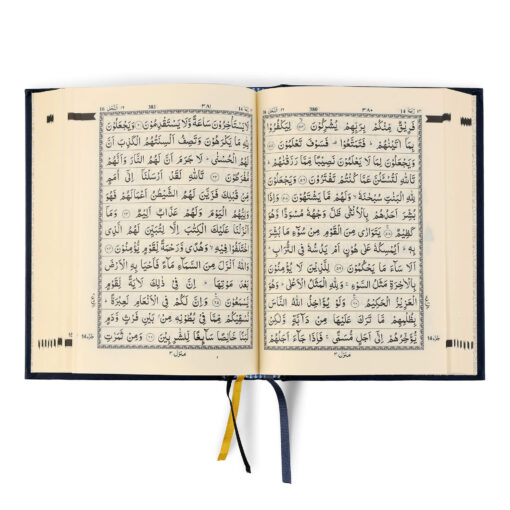 380 ٣٨٠
فَرِيْقٌ مِّنْكُمْ بِرَبِّهِمْ يُشْرِكُوْنَ ﴿٥٤﴾ لِيَكْفُرُوْا
بِمَآ اٰتَيْنٰهُمْ ؕ فَتَمَتَّعُوْا ۫ فَسَوْفَ تَعْلَمُوْنَ ﴿٥٥﴾
وَيَجْعَلُوْنَ لِمَا لَا يَعْلَمُوْنَ نَصِيْبًا مِّمَّا رَزَقْنٰهُمْ ؕ
تَاللّٰهِ لَتُسْـَٔلُنَّ عَمَّا كُنْتُمْ تَفْتَرُوْنَ ﴿٥٦﴾ وَيَجْعَلُوْنَ
لِلّٰهِ الْبَنٰتِ سُبْحٰنَهٗ ۙ وَلَهُمْ مَّا يَشْتَهُوْنَ ﴿٥٧﴾ وَاِذَا
بُشِّرَ اَحَدُهُمْ بِالْاُنْثٰى ظَلَّ وَجْهُهٗ مُسْوَدًّا وَّهُوَ
كَظِيْمٌ ﴿٥٨﴾ يَتَوَارٰى مِنَ الْقَوْمِ مِنْ سُوْٓءِ مَا بُشِّرَ
بِهٖ ؕ اَيُمْسِكُهٗ عَلٰى هُوْنٍ اَمْ يَدُسُّهٗ فِى التُّرَابِ ؕ
اَلَا سَآءَ مَا يَحْكُمُوْنَ ﴿٥٩﴾ لِلَّذِيْنَ لَا يُؤْمِنُوْنَ
بِالْاٰخِرَةِ مَثَلُ السَّوْءِ ۚ وَلِلّٰهِ الْمَثَلُ الْاَعْلٰى ؕ وَهُوَ
الْعَزِيْزُ الْحَكِيْمُ ﴿٦٠﴾ وَلَوْ يُؤَاخِذُ اللّٰهُ النَّاسَ
بِظُلْمِهِمْ مَّا تَرَكَ عَلَيْهَا مِنْ دَآبَّةٍ وَّلٰكِنْ
يُّؤَخِّرُهُمْ اِلٰٓى اَجَلٍ مُّسَمًّى ۚ فَاِذَا جَآءَ اَجَلُهُمْ
منزل ٣
٣٨١
لَا يَسْتَاْخِرُوْنَ سَاعَةً وَّلَا يَسْتَقْدِمُوْنَ ﴿٦١﴾ وَيَجْعَلُوْنَ
لِلّٰهِ مَا يَكْرَهُوْنَ وَتَصِفُ اَلْسِنَتُهُمُ الْكَذِبَ اَنَّ
لَهُمُ الْحُسْنٰى ؕ لَا جَرَمَ اَنَّ لَهُمُ النَّارَ وَاَنَّهُمْ
مُّفْرَطُوْنَ ﴿٦٢﴾ تَاللّٰهِ لَقَدْ اَرْسَلْنَآ اِلٰٓى اُمَمٍ
مِّنْ قَبْلِكَ فَزَيَّنَ لَهُمُ الشَّيْطٰنُ اَعْمَالَهُمْ فَهُوَ
وَلِيُّهُمُ الْيَوْمَ وَلَهُمْ عَذَابٌ اَلِيْمٌ ﴿٦٣﴾ وَمَآ
اَنْزَلْنَا عَلَيْكَ الْكِتٰبَ اِلَّا لِتُبَيِّنَ لَهُمُ الَّذِى
اخْتَلَفُوْا فِيْهِ ۙ وَهُدًى وَّرَحْمَةً لِّقَوْمٍ يُّؤْمِنُوْنَ ﴿٦٤﴾
وَاللّٰهُ اَنْزَلَ مِنَ السَّمَآءِ مَآءً فَاَحْيَا بِهِ الْاَرْضَ
بَعْدَ مَوْتِهَا ؕ اِنَّ فِيْ ذٰلِكَ لَاٰيَةً لِّقَوْمٍ
يَّسْمَعُوْنَ ﴿٦٥﴾ وَاِنَّ لَكُمْ فِى الْاَنْعَامِ لَعِبْرَةً ؕ
نُسْقِيْكُمْ مِّمَّا فِيْ بُطُوْنِهٖ مِنْۢ بَيْنِ فَرْثٍ وَّدَمٍ
لَّبَنًا خَالِصًا سَآئِغًا لِّلشّٰرِبِيْنَ ﴿٦٦﴾ وَمِنْ ثَمَرٰتِ
منزل ٣